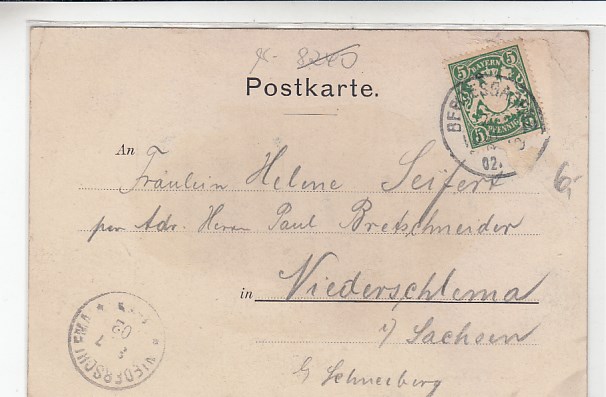 Postkarte.
5 BAYERN 5
5 PFENNIG 5
BERCHTESGADEN
02.
6,-
An Fräulein Helene Seifert
per Adr. Herrn Paul Bretschneider
in Niederschlema
i/ Sachsen
b/ Schneeberg
NIEDERSCHLEMA